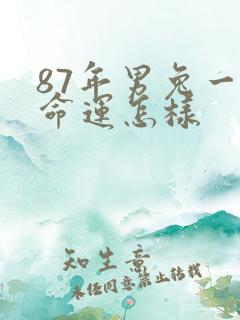 87年男兔一
命运怎样
知生意
未经同意禁止转载